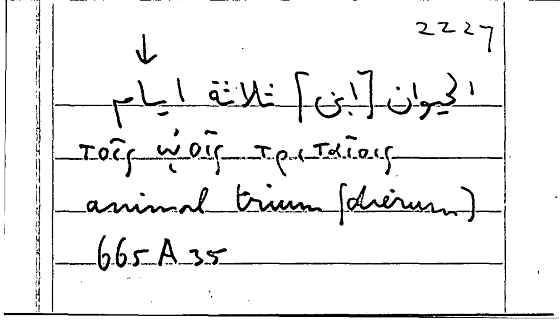 2227
↓
الحيوان [ابن] ثلاثة ايام
τοῖς ᾠοῖς τριταίοις
animal trium (dierum)
665 A 35